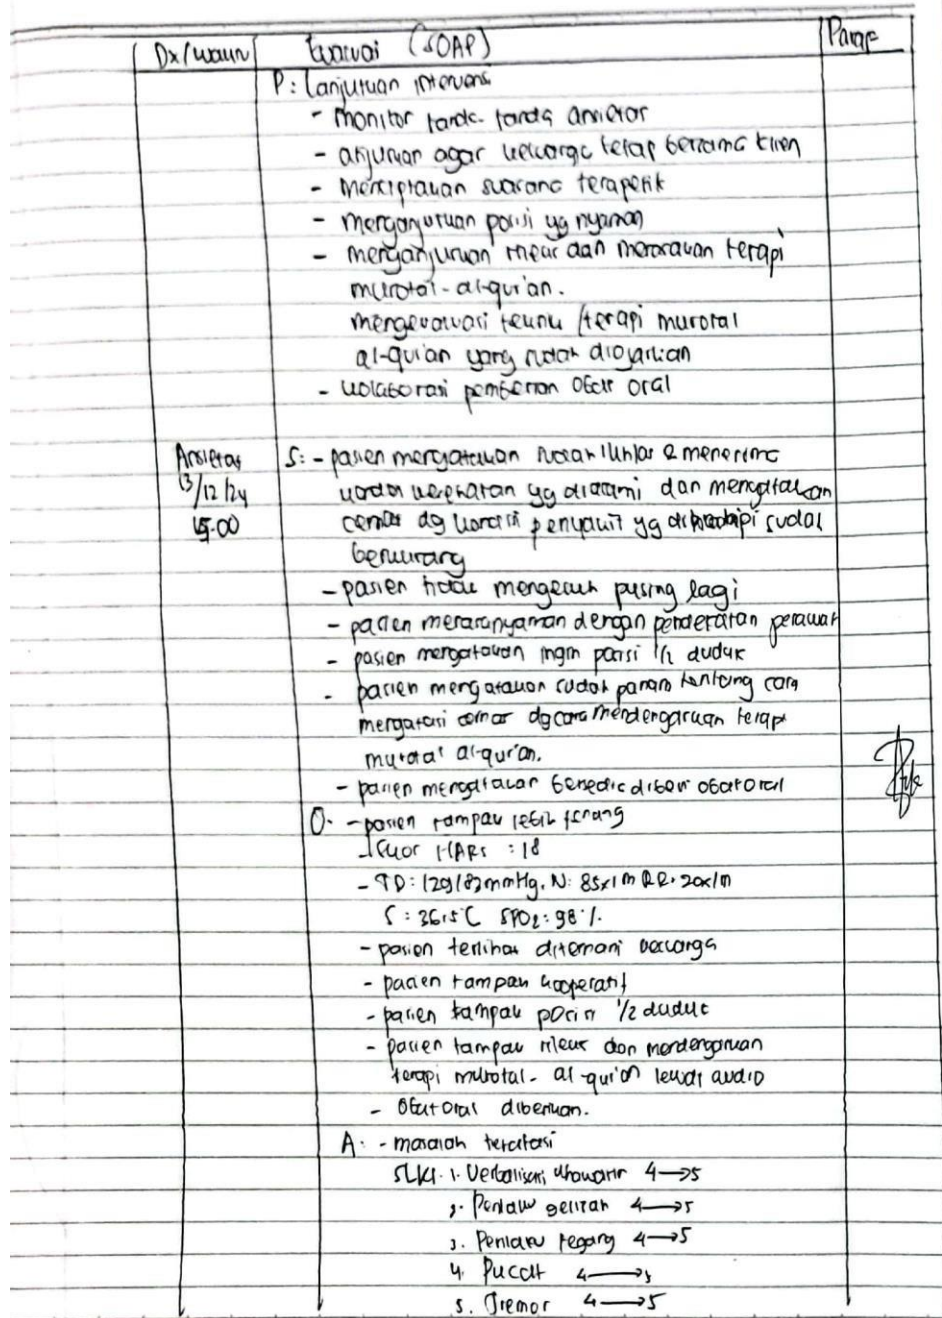 Dx/waktu Evaluasi (SOAP) Paraf
P: Lanjutkan intervensi
- Monitor tanda-tanda ansietas
- anjurkan agar keluarga tetap bersama klien
- Menciptakan suasana terapetik
- menganjurkan posisi yg nyaman
- menganjurkan rileks dan merasakan terapi
murotal-al-qur'an.
mengevaluasi teknik/terapi murotal
al-qur'an yang sudah diajarkan
- kolaborasi pemberian obat oral
Ansietas
13/12/24
S: - pasien mengatakan sudah ikhlas & menerima
kondisi kesehatan yg dialami dan mengatakan
cemas dg kondisi penyakit yg dihadapi sudah
berkurang
- pasien tidak mengeluh pusing lagi
- pasien merasa nyaman dengan pendekatan perawat
- pasien mengatakan ingin posisi 1/2 duduk
- pasien mengatakan sudah paham tentang cara
mengatasi cemas dg cara mendengarkan terapi
murotal al-qur'an.
- pasien mengatakan bersedia diberi obat oral
O: - pasien tampak lebih tenang
- Skor HARS : 18
- TD: 129/82 mmHg, N: 85x/m RR: 20x/m
S: 36,5°C SPO2: 98%.
- pasien terlihat ditemani keluarga
- pasien tampak kooperatif
- pasien tampak posisi 1/2 duduk
- pasien tampak rileks dan mendengarkan
terapi murotal- al-qur'an lewat audio
- Obat oral diberikan.
A: - masalah teratasi
SLKI: 1. Verbalisasi khawatir 4→5
2. Perilaku gelisah 4→5
3. Perilaku tegang 4→5
4. Pucat 4→5
5. Tremor 4→5